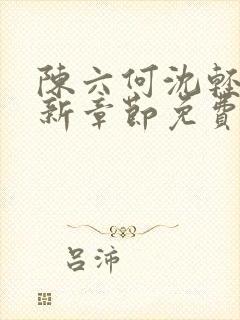 陳六何沈輕
新章節免費
呂沛